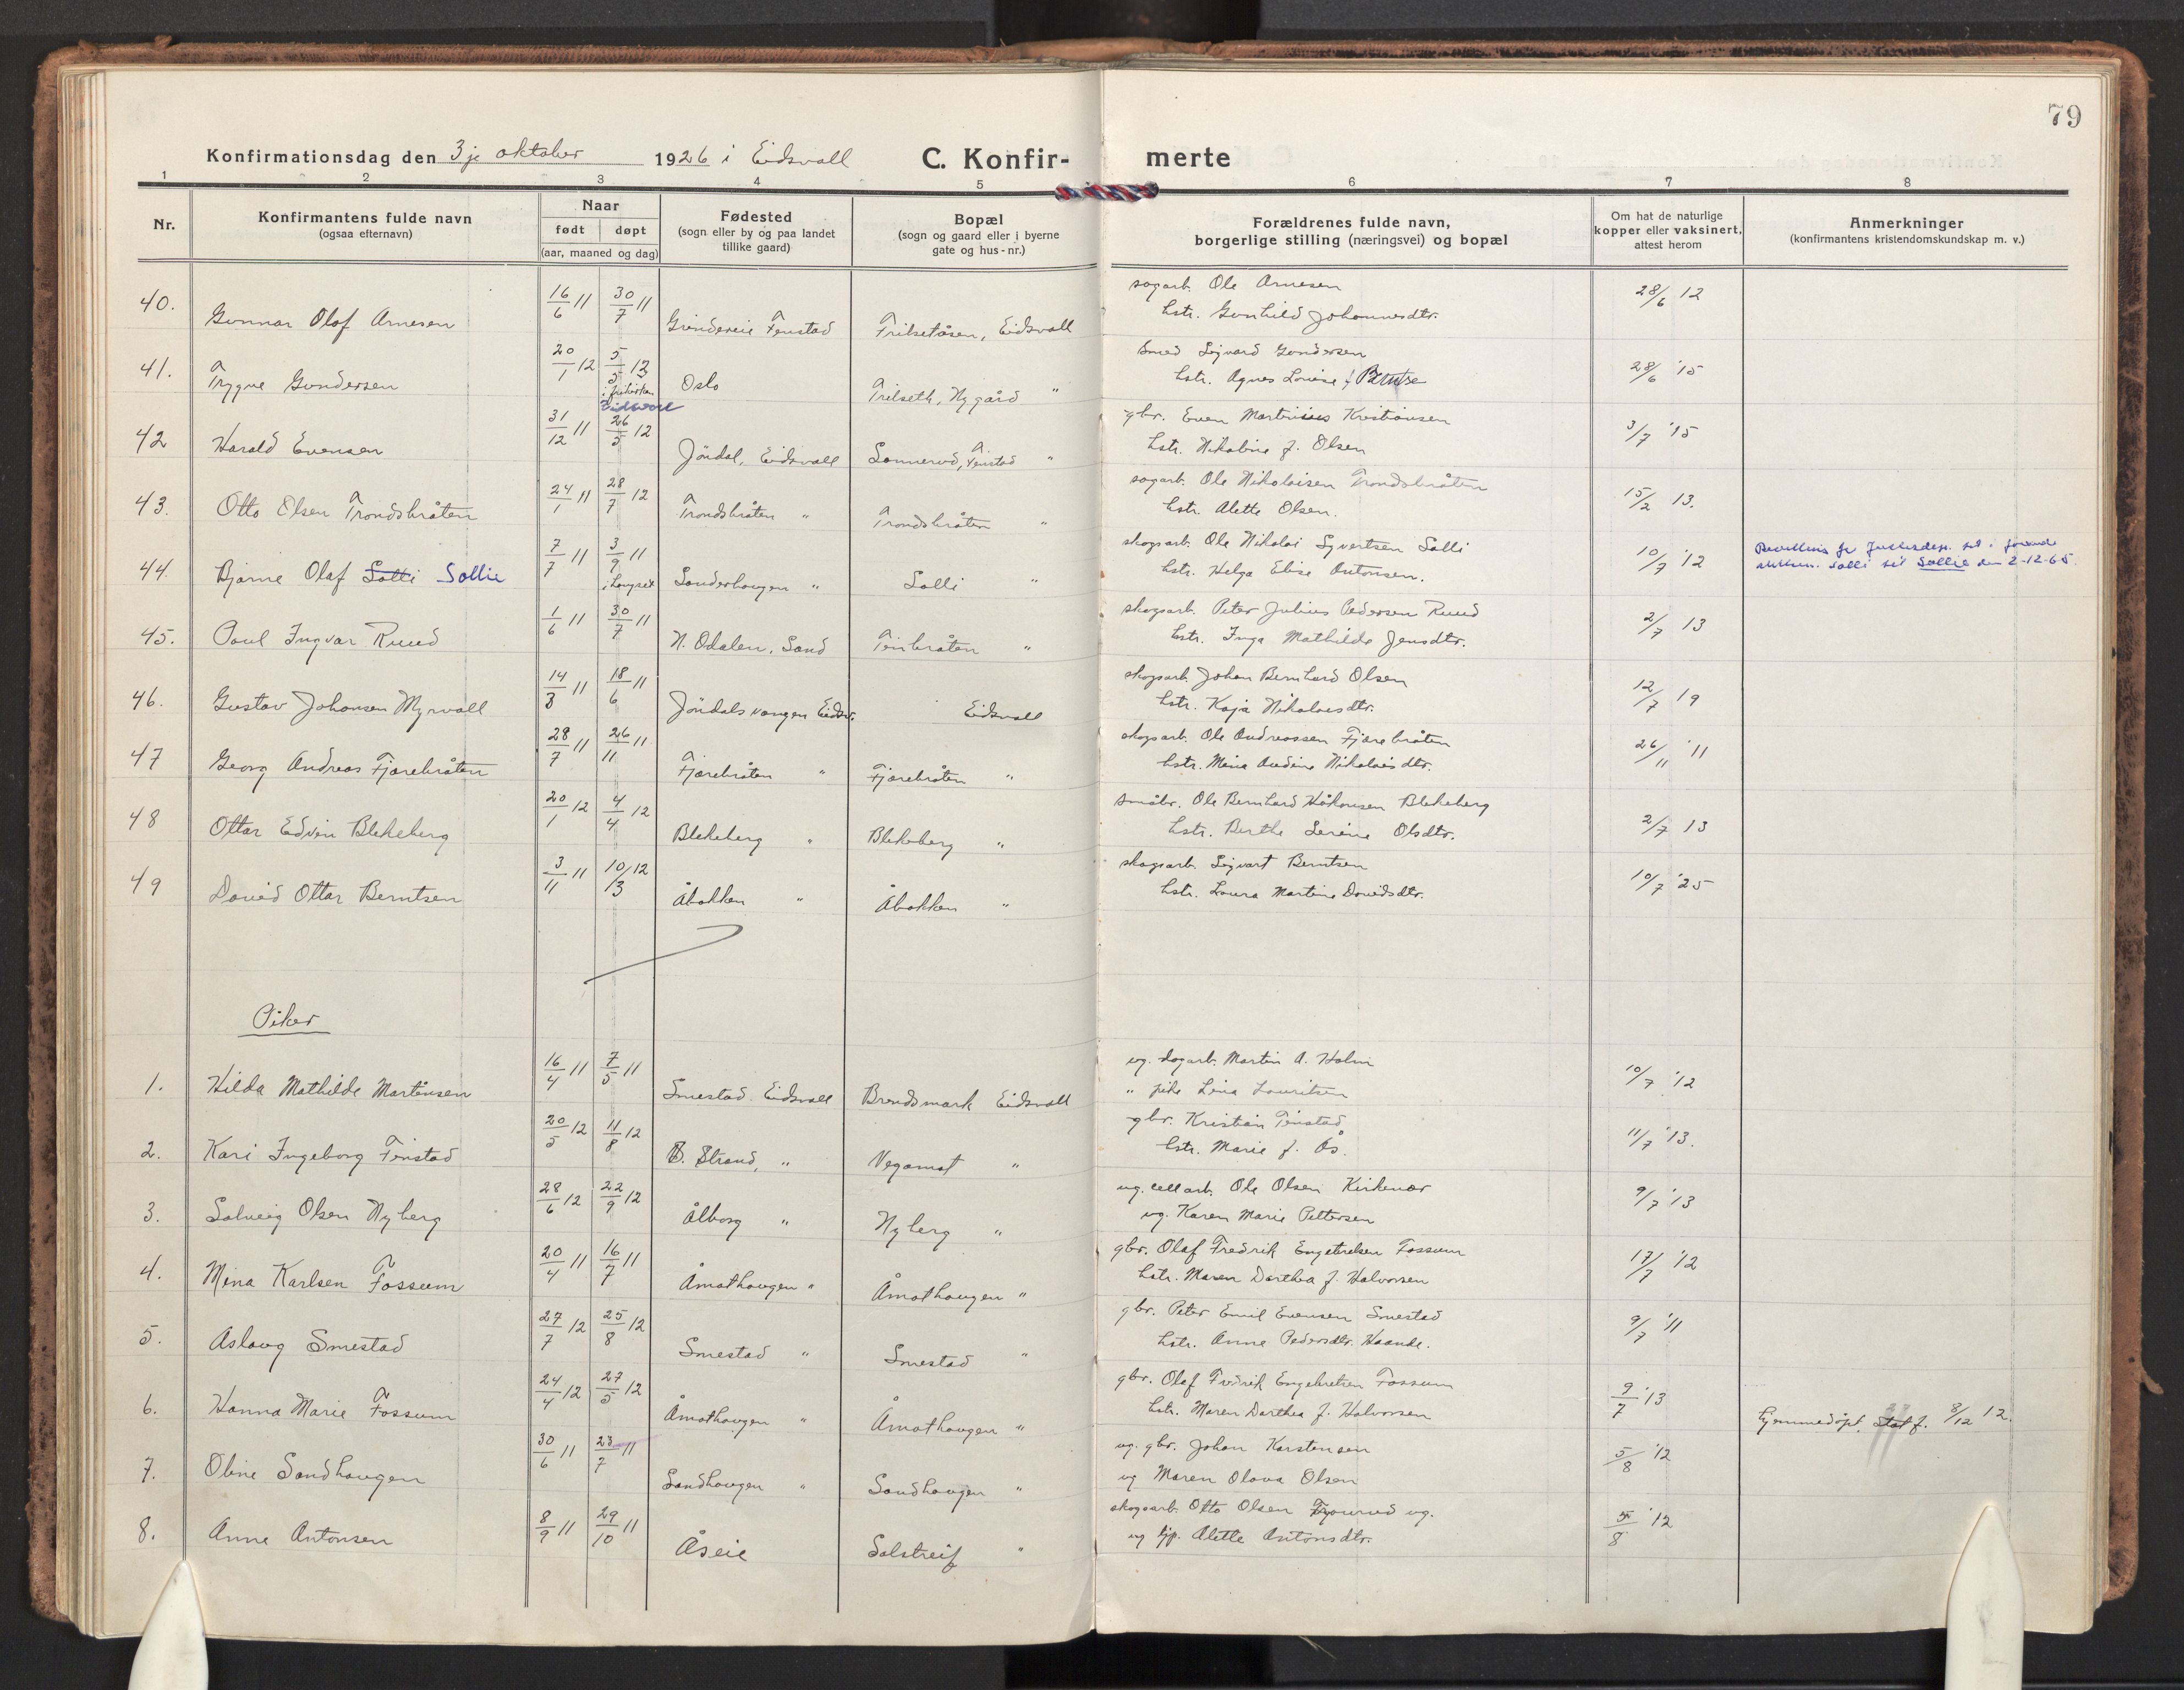 79
Konfirmationsdag den 3je oktober 1926 i Eidsvall C. Konfir- merte
1 2 3 4 5 6 7 8
Nr. Konfirmantens fulde navn (ogsaa efternavn) Naar født døpt (aar, maaned og dag) Fødested (sogn eller by og paa landet tillike gaard) Bopæl (sogn og gaard eller i byerne gate og hus-nr.) Forældrenes fulde navn, borgerlige stilling (næringsvei) og bopæl Om hat de naturlige kopper eller vaksinert, attest herom Anmerkninger (konfirmantens kristendomskundskap m. v.)
40. Gunnar Olaf Arnesen 16/6 11 30/7 11 Grindereie Fenstad Trilsetåsen, Eidsvall sagarb. Ole Arnesen
hstr. Gunhild Johannesdtr. 28/6 12
41. Trygve Gundersen 20/1 12 5/5 13 i frikirken Eidsvoll Oslo Trilseth, Nygård " Smed Sigvard Gundersen
hstr. Agnes Lovise f. Berntse 28/6 '15
42 Harald Evensen 31/12 11 26/5 12 Jöndal, Eidsvall Sannerud, Finstad " gbr. Even Martinius Kristiansen
hstr. Nikoline f. Olsen 3/7 '15
43. Otto Olsen Trondsbråten 24/1 11 28/7 12 Trondsbråten " Trondsbråten " sagarb. Ole Nikolaisen Trondsbråten
hstr. Alette Olsen. 15/2 13.
44. Bjarne Olaf Solli Sollie 7/7 11 3/9 11 i Langset Sanderhaugen " Solli " skogsarb. Ole Nikolai Syvertsen Solli
hstr. Helga Elise Antonsen. 10/7 '12 Solli til Sollie den 2-12-65
45. Paul Ingvar Ruud 1/6 11 30/7 11 N. Odalen, Sand Tinbråten " skogsarb. Peter Julius Pedersen Ruud
hstr. Inga Mathilde Jensdtr. 2/7 13
46. Gustav Johansen Myrvall 14/3 11 18/6 11 Jöndalsvangen Eidsv. Eidsvall skogsarb. Johan Bernhard Olsen
hstr. Kaja Nikolaisdtr. 12/7 19
47 Georg Andreas Fjærebråten 28/7 11 26/11 11 Fjærebråten " Fjærebråten " skogsarb. Ole Andreassen Fjærebråten
hstr. Mina Andine Nikolaisdtr. 26/11 '11
48 Ottar Edvin Blekeberg 20/1 12 4/4 12 Blekeberg " Blekeberg " småbr. Ole Bernhard Håkonsen Blekeberg
hstr. Berthe Serine Olsdtr. 2/7 13
49 David Ottar Berntsen 3/11 11 10/3 12 Åbakken " Åbakken " skogsarb. Sigvart Berntsen
hstr. Laura Martine Davidsdtr. 10/7 '25
Piker
1. Hilda Mathilde Martinsen 16/4 11 7/5 11 Smestad Eidsvall Brendsmark Eidsvall ug. dagarb. Martin A. Holm
" pike Lina Lauritsen 10/7 '12
2. Kari Ingeborg Finstad 20/5 12 11/8 12 Strand, " Vegamot " gbr. Kristian Finstad
hstr. Marie f. Ås. 11/7 '13.
3. Solveig Olsen Nyberg 28/6 12 22/9 12 Ålborg " Nyberg " ug. cellarb. Ole Olsen Kirkenær
ug. Karen Marie Pettersen 9/7 '13
4. Mina Karlsen Fossum 20/4 11 16/7 11 Åmothaugen " Åmothaugen " gbr. Olaf Fredrik Engebretsen Fossum
hstr. Maren Dorthea f. Halvorsen 17/7 '12
5. Aslaug Smestad 27/7 12 25/8 12 Smestad " Smestad " gbr. Peter Emil Evensen Smestad
hstr. Anne Pedersdtr. Haande. 9/7 '11
6. Hanna Marie Fossum 24/4 12 27/5 12 Åmothaugen " Åmothaugen " gbr. Olaf Fredrik Engebretsen Fossum
hstr. Maren Dorthea f. Halvorsen 9/7 '13 hjemmedöpt. statf. 8/12 12.
7. Oline Sandhaugen 30/6 11 23/7 11 Sandhaugen " Sandhaugen " ug. gbr. Johan Karstensen
ug Maren Olava Olsen 5/8 '12
8. Anne Antonsen 8/9 11 29/10 11 Åseie Solstreif " skogsarb. Otto Olsen ug.
ug tjp. Alette Antonsdtr. 5/8 '12